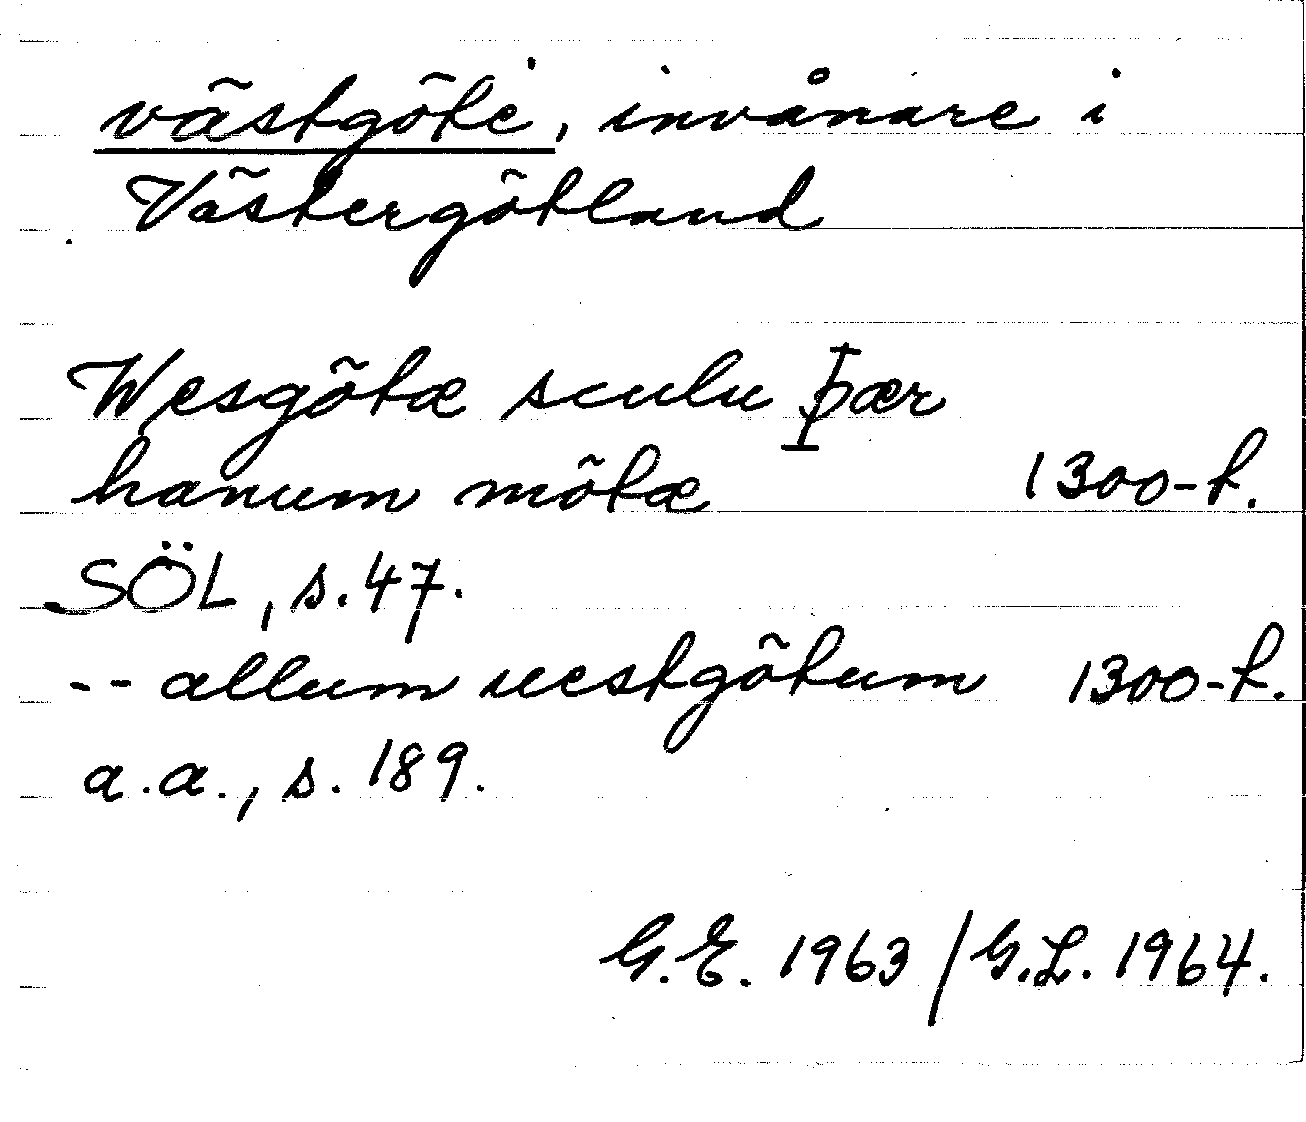 västgöte, invånare i
Västergötland
Wesgötæ sculu þær
hanum mötæ 1300-t.
SÖL, s. 47.
-- allum uestgötum 1300-t.
a.a., s. 189.
G.E. 1963 / G.L. 1964.